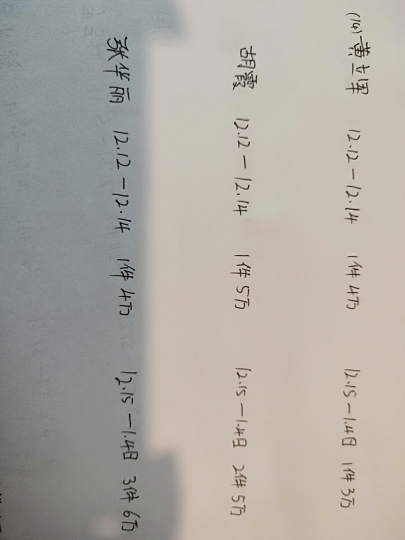 (14) 黄立军 12.12—12.14 1件4万 12.15—1.4日 1件3万
胡霞 12.12—12.14 1件5万 12.15—1.4日 2件5万
张华丽 12.12—12.14 1件4万 12.15—1.4日 3件6万